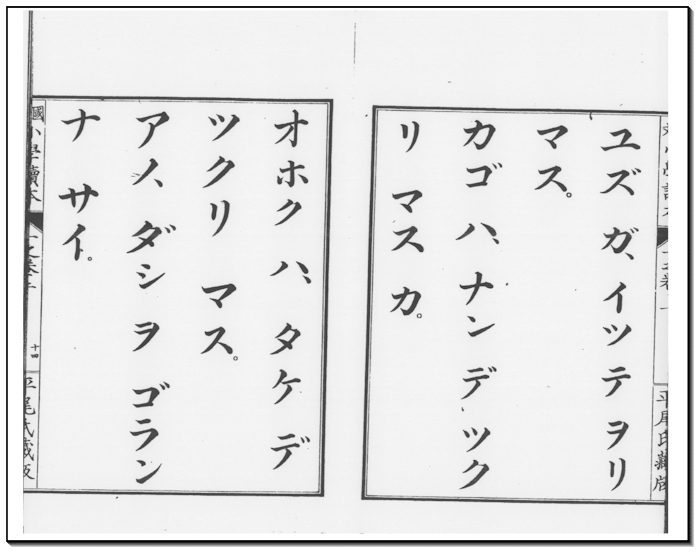 ユズ ガ、イツテ ヲリ
マス。
カゴ ハ、ナン デ ツク
リ マス カ。
オホク ハ、タケ デ
ツクリ マス。
アノ、ダシ ヲ ゴラン
ナ サイ。
國小學讀本
十四
平尾氏藏版